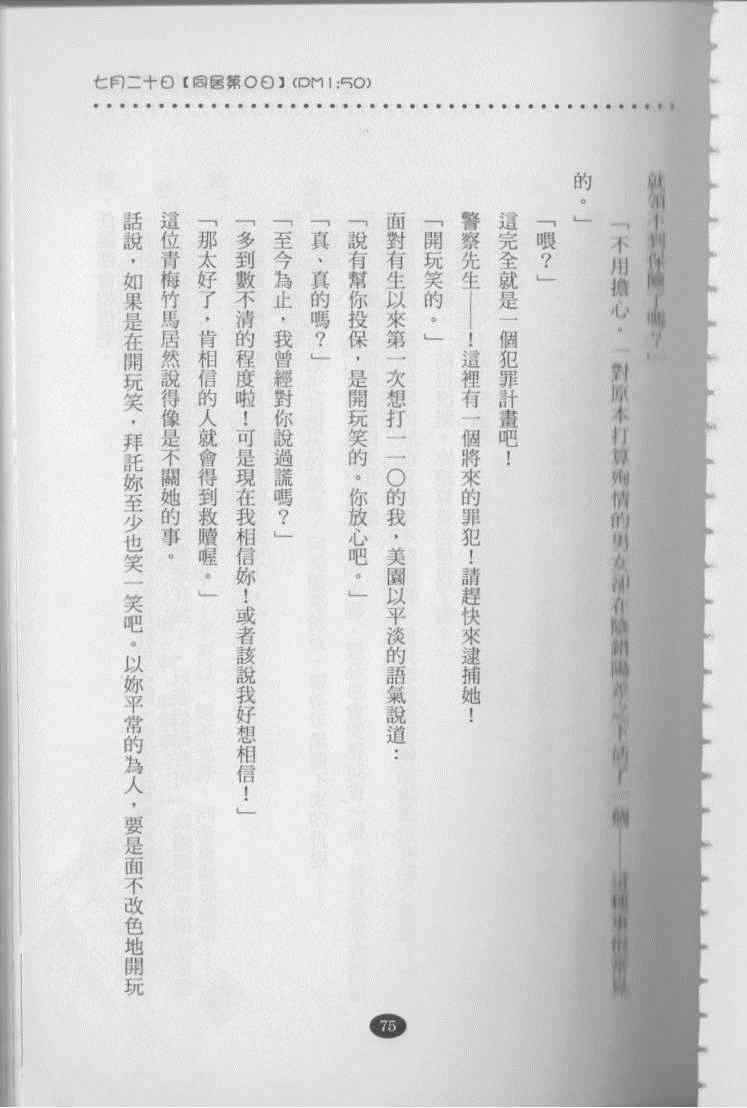 七月二十日【同居第〇日】(PM1:50)
就領不到保險了嗎？」
「不用擔心，一對原本打算殉情的男女卻在陰錯陽差之下活了一個——這種事很常見
的。」
「喂？」
這完全就是一個犯罪計畫吧！
警察先生——！這裡有一個將來的罪犯！請趕快來逮捕她！
「開玩笑的。」
面對有生以來第一次想打一一〇的我，美園以平淡的語氣說道：
「說有幫你投保，是開玩笑的。你放心吧。」
「真、真的嗎？」
「至今為止，我曾經對你說過謊嗎？」
「多到數不清的程度啦！可是現在我相信妳！或者該說我好想相信！」
「那太好了，肯相信的人就會得到救贖喔。」
這位青梅竹馬居然說得像是不關她的事。
話說，如果是在開玩笑，拜託妳至少也笑一笑吧。以妳平常的為人，要是面不改色地開玩
75